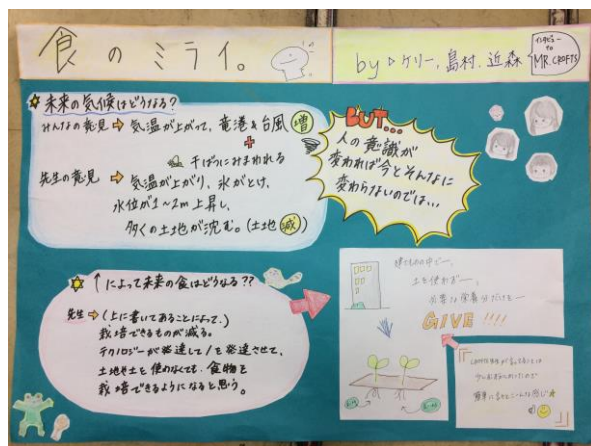 食のミライ。
by ケリー, 島村, 近森
インタビュー
to
MR. CROFTS
未来の気候はどうなる?
みんなの意見 ➡ 気温が上がって、竜巻&台風 増
+
干ばつにみまわれる
先生の意見 ➡ 気温が上がり、氷がとけ、
水位が1~2m上昇し、
多くの土地が沈む。(土地 減)
BUT...
人の意識が
変われば今とそんなに
変わらないのでは...
↑によって未来の食はどうなる??
先生 ➡ (上に書いてあることによって、)
栽培できるものが減る。
テクノロジーが発達して/を発達させて、
土地も土と使わなくても、食物を
栽培できるようになると思う。
建てものの中でー、
土を使わずー、
必要な栄養分だけをー
GIVE!!!!
CROFTS先生が言ってることは
簡単に言うとこんな感じ☆